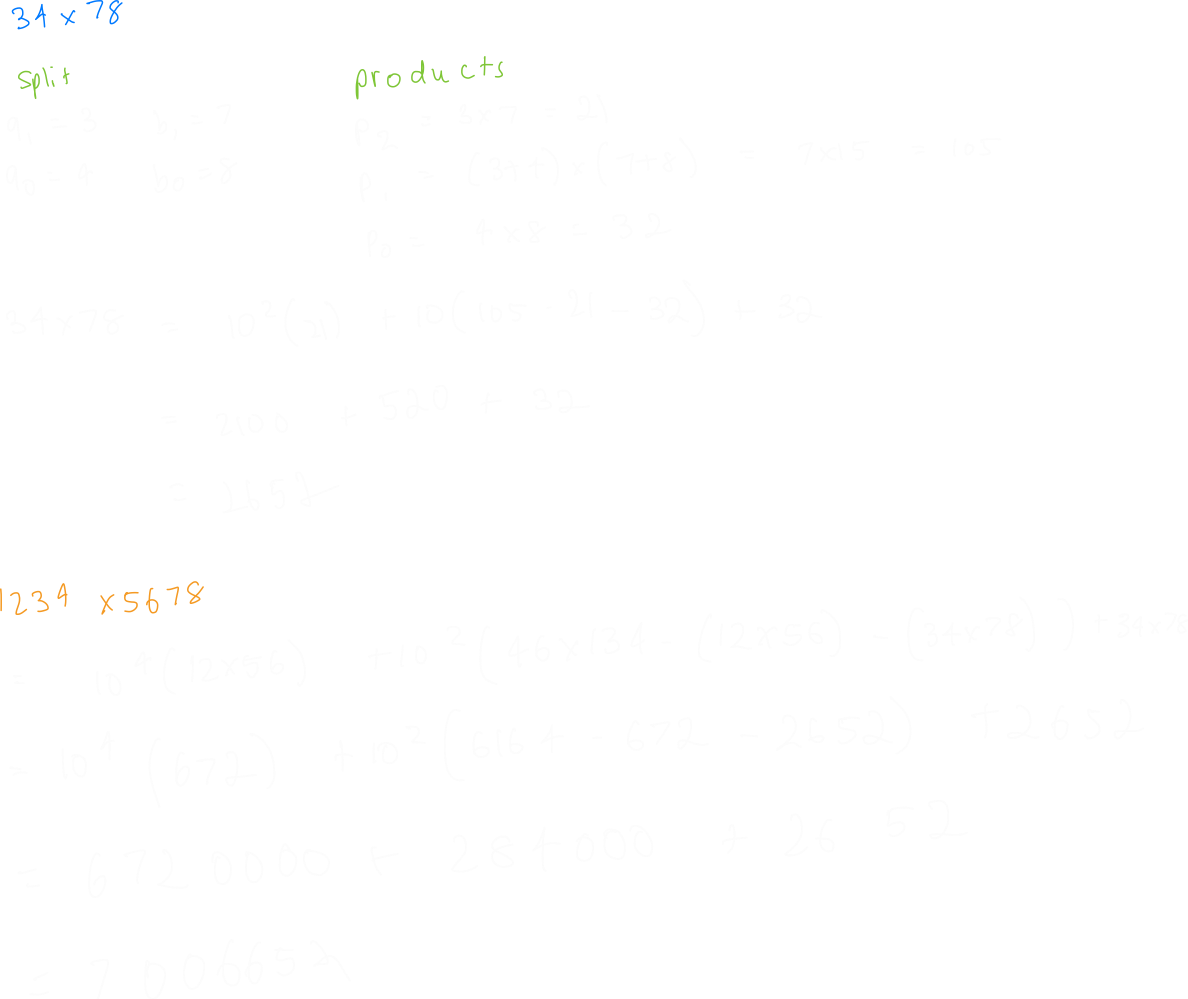 34 x 78
split products
a₁ = 3 b₁ = 7 P₂ = 3x7 = 21
a₀ = 4 b₀ = 8 P₁ = (3+4) x (7+8) = 7x15 = 105
P₀ = 4 x 8 = 32
34 x 78 = 10²(21) + 10(105 - 21 - 32) + 32
= 2100 + 520 + 32
= 2652
1234 x 5678
= 10⁴(12x56) + 10²(46x134 - (12x56) - (34x78)) + 34x78
= 10⁴(672) + 10²(6164 - 672 - 2652) + 2652
= 6720000 + 284000 + 2652
= 7006652